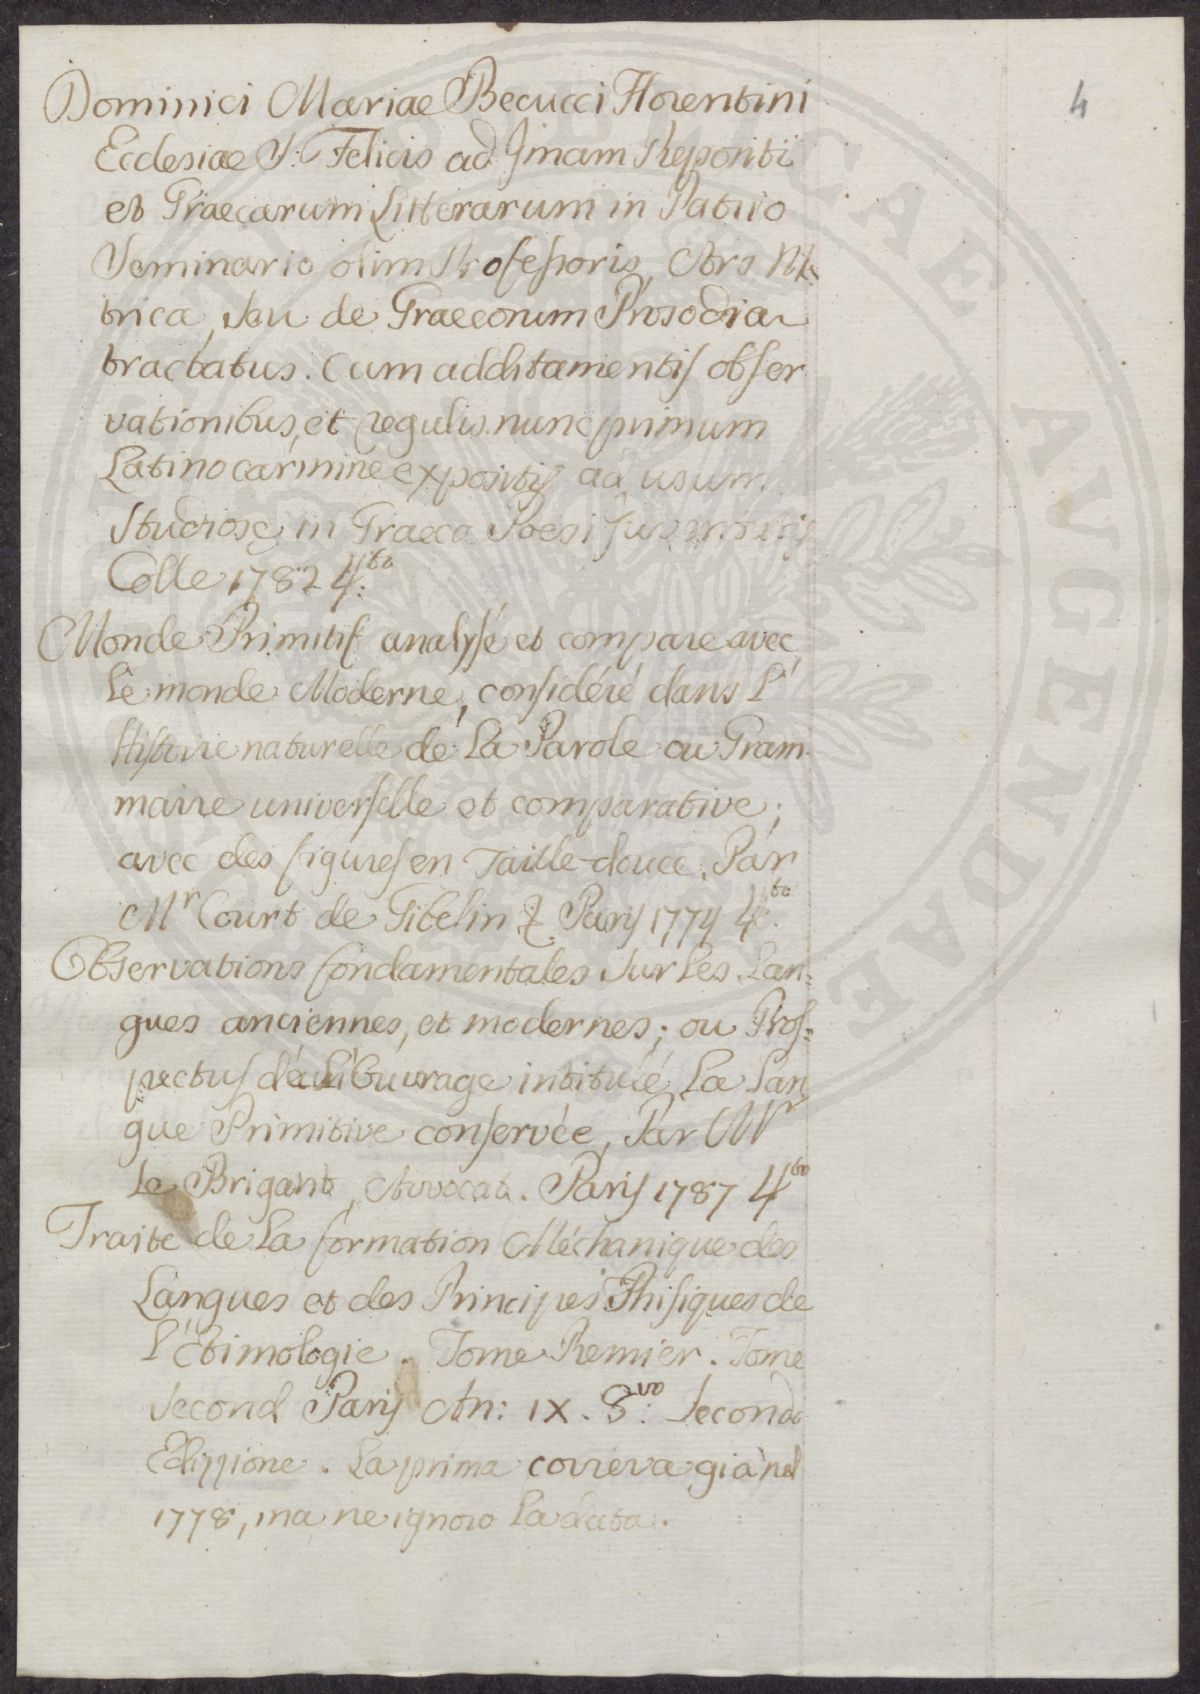 4
Dominici Mariae Becucci Florentini
Ecclesiae S: Felicis ad Jmam Repositi
et Graecarum Litterarum in Patrio
Seminario olim Professoris, Ars Me-
trica, seu de Graecorum Prosodia
tractatus. Cum additamentis obser
vationibus, et regulis nunc primum
Latino carmine expositis ad usum
Studiosę in Graeca Poesi Juventutis
Colle 1782 4:to
Monde Primitif analysé et compare avec
le monde Moderne, considéré dans l'
Histoire naturelle de la Parole ou Gram-
maire universelle et comparative;
avec des figures en Taille-douce. Par
Mr Court de Gibelin & Paris 1774 4:to
Observations fondamentales sur les Lan-
gues anciennes, et modernes; ou Pros-
pectus de l'Ouvrage intitulé La Lan
gue Primitive conservée, Par Mr
Le Brigant, Avvocat. Paris 1787 4to
Traite de la formation Méchanique des
Langues et des Principes Phisiques de
l'Etimologie. Tome Premier. Tome
second Paris An: IX. 8:vo Seconda
Edizzione. La prima correva già nel
1778, ma ne ignoro la data.